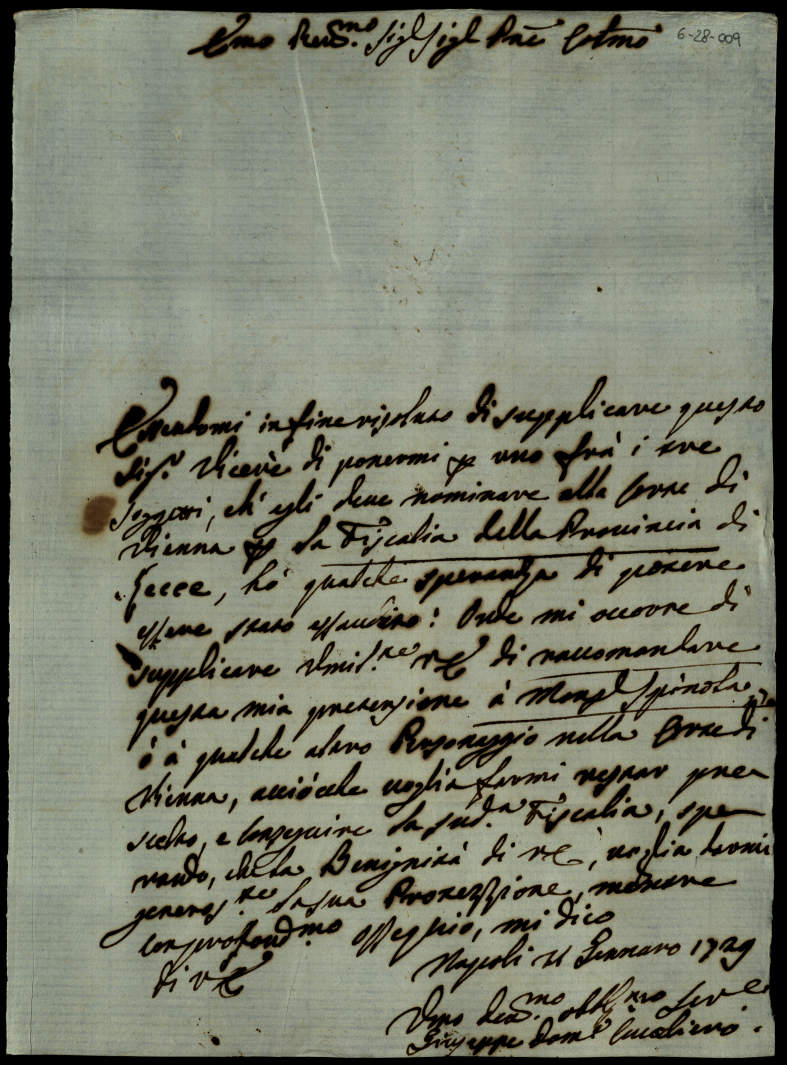 Emo Reu.mo Sig.r Sig.r Pne Colmo
6-28-009
Essendomi in fine risoluto di supplicare questo
Sig.r Vicerè di ponermi p uno frà i tre
Soggetti, ch' egli deve nominare alla Corte di
Vienna p la Fiscalia della Provincia di
Lecce, hò qualche speranza di potere
essere stato essaudito: Onde mi occorre di
supplicare Umil.te VE di raccomandare
questa mia pretenzione à Mons.r Spinola,
ò à qualche altro Personaggio nella Corte di
Vienna, acciòche voglia farmi restar pre
scelto, e conseguire la sud.a Fiscalia, spe
rando, che la Benignità di VE, voglia darmi
generos.te la sua Protezzione, mentre
con profond.mo ossequio, mi dico
di VE
Napoli Gennaro 1729
Umo deu.mo obblmo ser.e
Giuseppe Dom.o